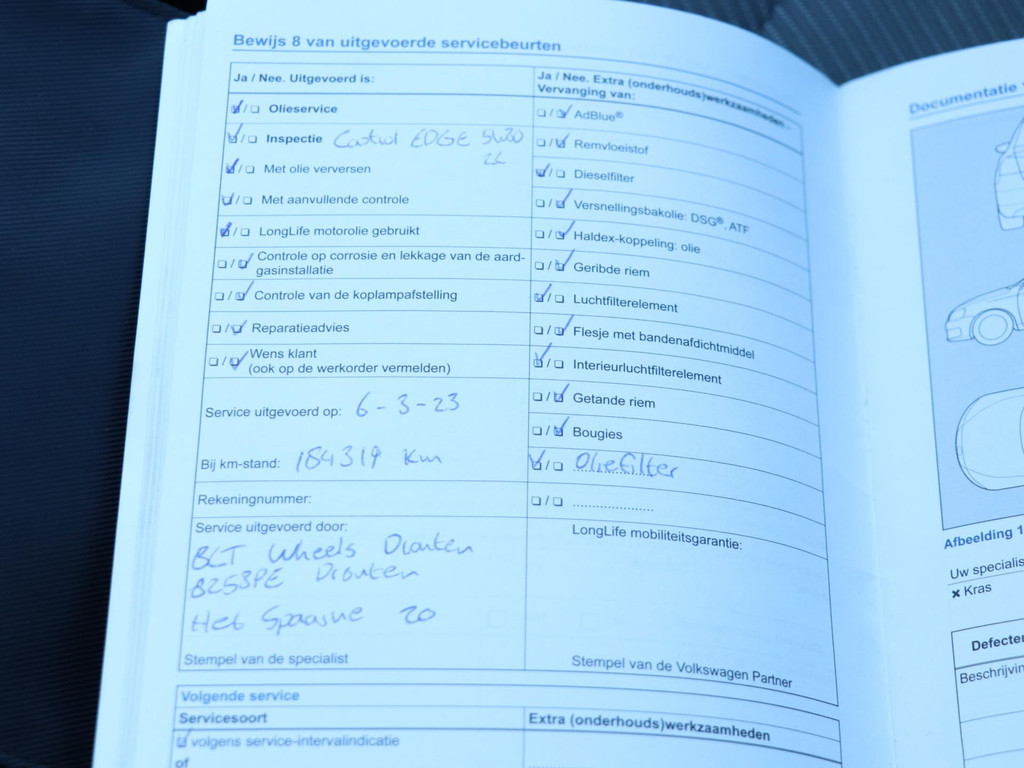 Bewijs 8 van uitgevoerde servicebeurten
Ja / Nee. Uitgevoerd is:
Olieservice
Inspectie Castrol EDGE 5W30
Met olie verversen
Met aanvullende controle
LongLife motorolie gebruikt
Controle op corrosie en lekkage van de aard-
gasinstallatie
Controle van de koplampafstelling
Reparatieadvies
Wens klant
(ook op de werkorder vermelden)
Service uitgevoerd op: 6-3-23
Bij km-stand: 184319 Km
Rekeningnummer:
Service uitgevoerd door:
BCT Wheels Dronten
8253PE Dronten
Het Spaarne 20
Stempel van de specialist
Ja / Nee. Extra (onderhouds)werkzaamheden -
Vervanging van:
AdBlue®
Remvloeistof
Dieselfilter
Versnellingsbakolie: DSG®, ATF
Haldex-koppeling: olie
Geribde riem
Luchtfilterelement
Flesje met bandenafdichtmiddel
Interieurluchtfilterelement
Getande riem
Bougies
Oliefilter
LongLife mobiliteitsgarantie:
Stempel van de Volkswagen Partner
Volgende service
Servicesoort
Extra (onderhouds)werkzaamheden
volgens service-intervalindicatie
of
Documentatie
Afbeelding 1
Uw specialis
Kras
Defecte
Beschrijvin